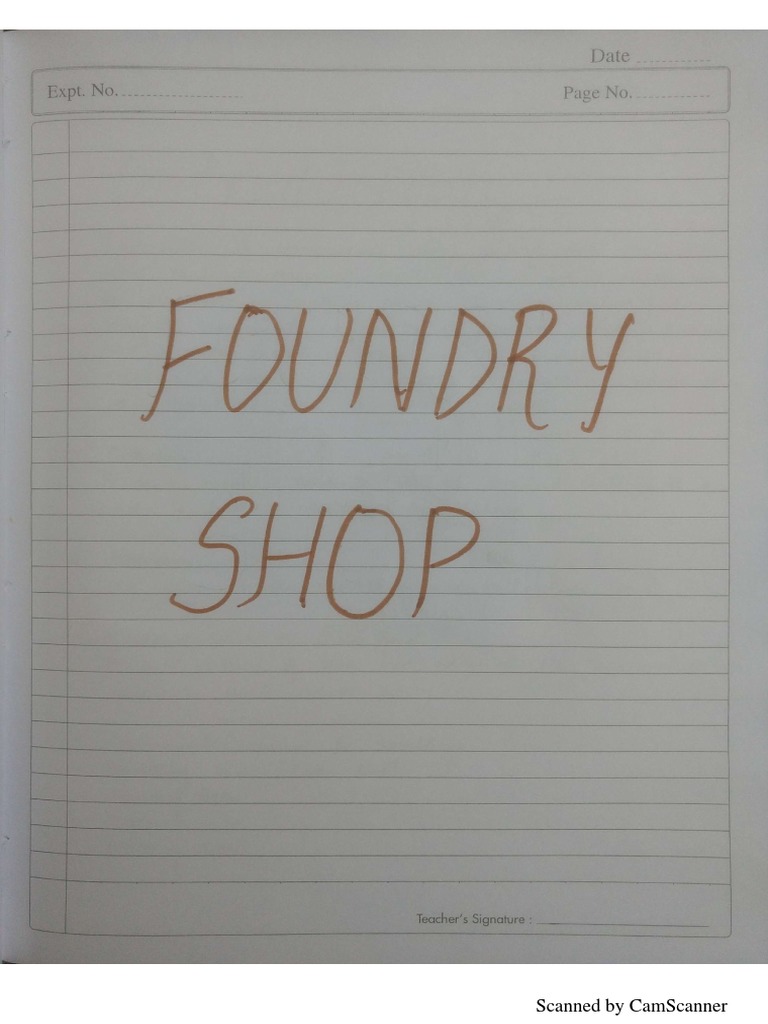 Date
Expt. No.
Page No.
FOUNDRY
SHOP
Teacher's Signature :
Scanned by CamScanner